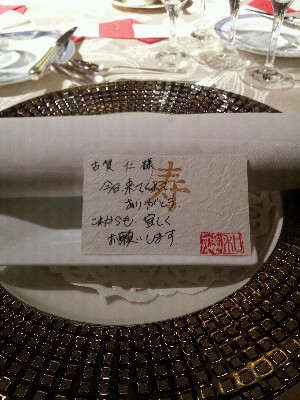 古賀 仁 様
寿
今日来てくれて
ありがとう
これからも、宜しく
お願いします。